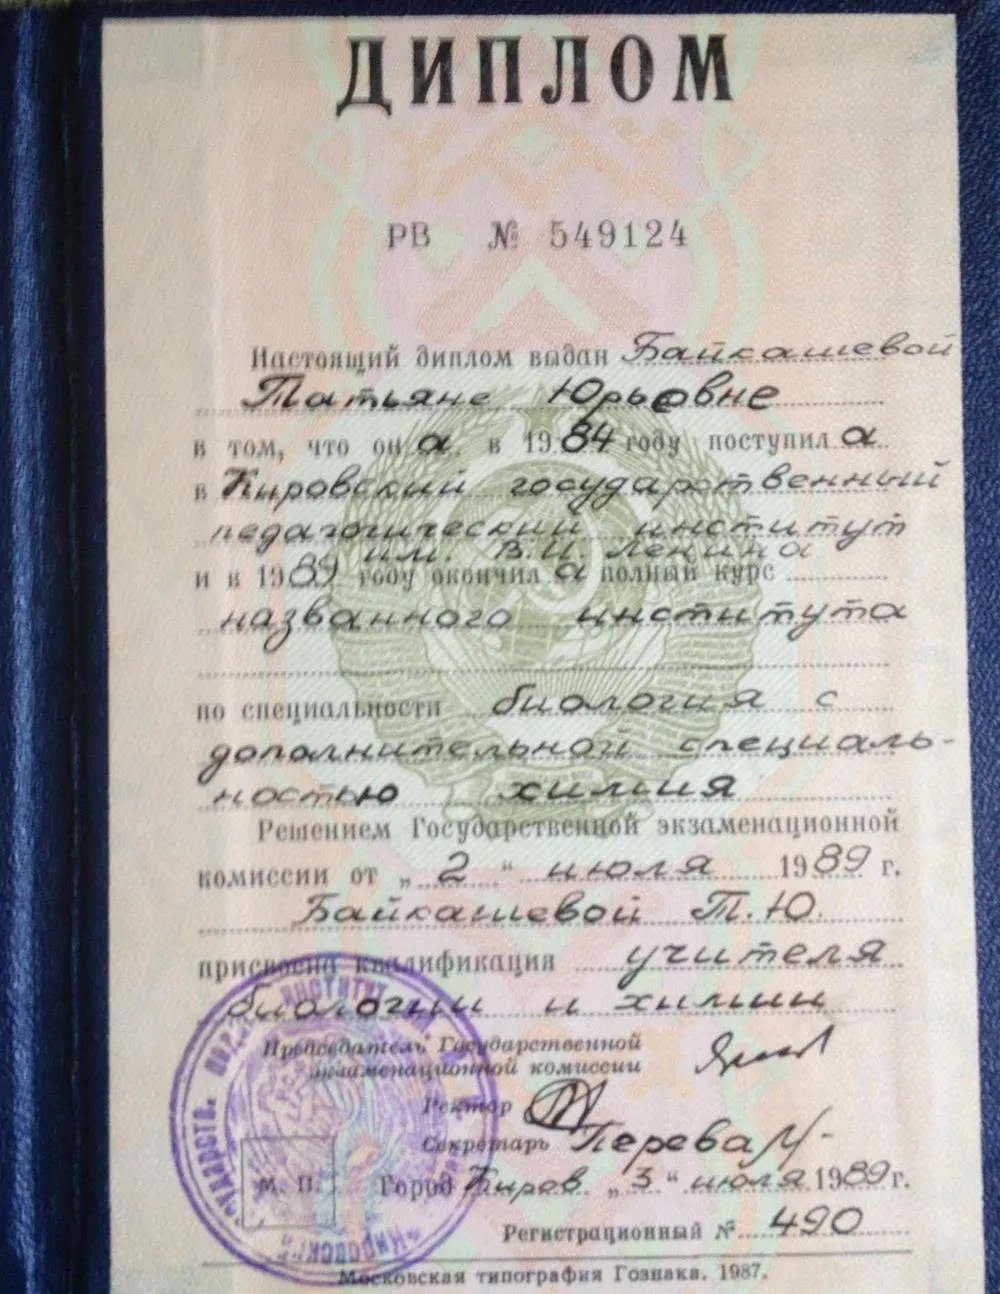 ДИПЛОМ
РВ № 549124
Настоящий диплом выдан Байкашевой
Татьяне Юрьевне
в том, что он а в 1984 году поступил а
в Кировский государственный
педагогический институт
им. В.И. Ленина
и в 1989 году окончил а полный курс
названного института
по специальности биология с
дополнительной специаль-
ностью химия
Решением Государственной экзаменационной
комиссии от „2“ июля 1989 г.
Байкашевой Т.Ю.
присвоена квалификация учителя
биологии и химии
Председатель Государственной
экзаменационной комиссии
Ректор
Секретарь
М. П. Город Киров „3“ июля 1989 г.
Регистрационный № 490
Московская типография Гознака. 1987.